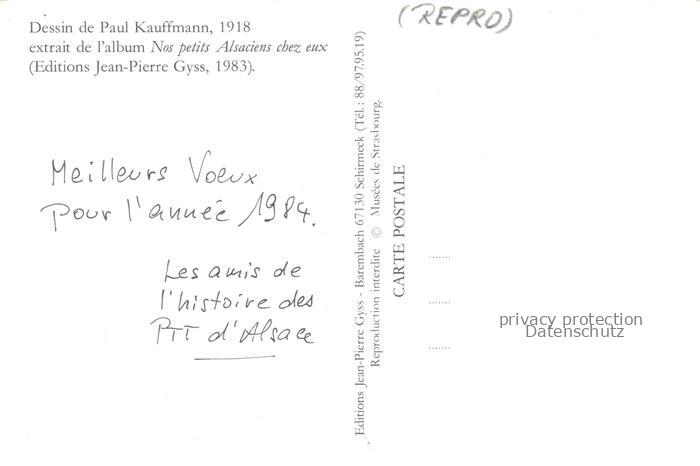 Dessin de Paul Kauffmann, 1918
extrait de l'album Nos petits Alsaciens chez eux
(Editions Jean-Pierre Gyss, 1983).
Meilleurs Voeux
pour l'année 1984.
Les amis de
l'histoire des
PTT d'Alsace
Editions Jean-Pierre Gyss - Barembach 67130 Schirmeck (Tél.: 88/97.95.19)
Reproduction interdite © Musées de Strasbourg.
CARTE POSTALE
(REPRO)
privacy protection
Datenschutz